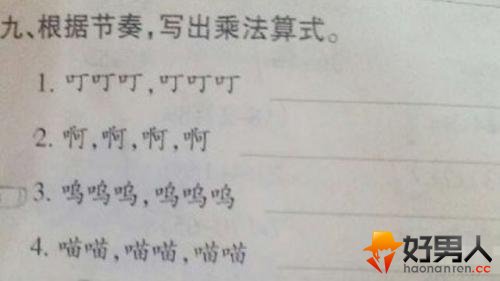 九、根据节奏,写出乘法算式。
1. 叮叮叮,叮叮叮
2. 啊,啊,啊,啊
3. 呜呜呜,呜呜呜
4. 喵喵,喵喵,喵喵
好男人
haonanren.cc